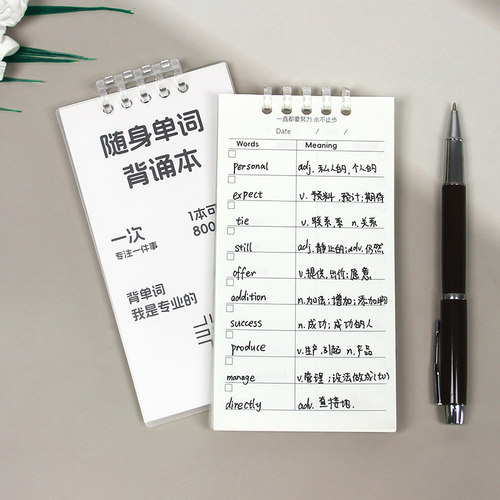 随身单词
背诵本
一次
专注一件事
1本可
800
背单词
我是专业的
一直都要努力 永不止步
Date / /
Words Meaning
personal adj. 私人的,个人的
expect v. 预料,预计;期待
tie v. 联系,系 n.关系
still adj.静止的;adv.仍然
offer v.提供,出价;愿意
addition n.加法;增加;添加物
success n.成功;成功的人
produce v.生产,引起 n.产品
manage v.管理;设法做成(to)
directly adv. 直接地.